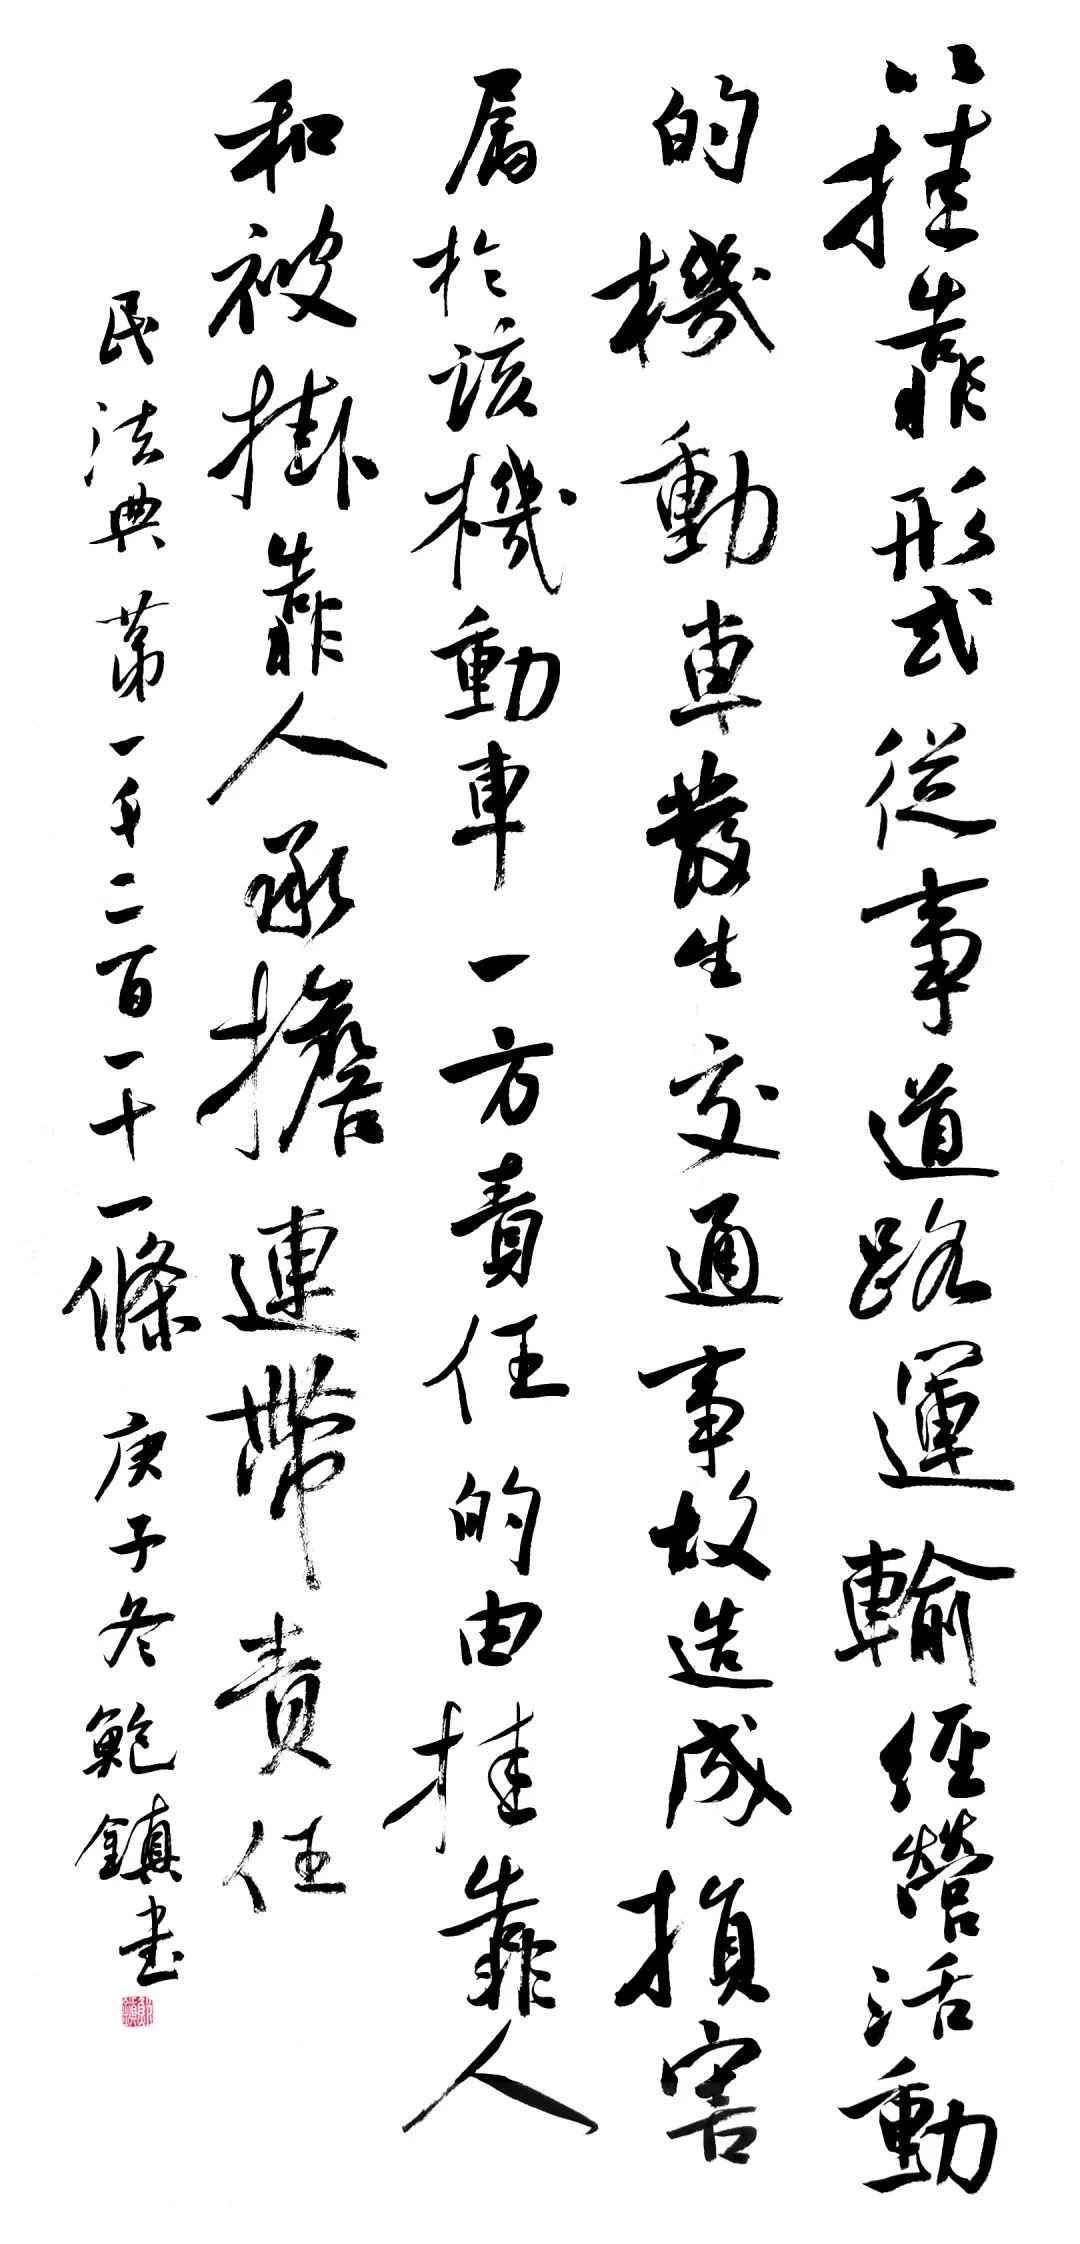 以挂靠形式從事道路運輸經營活動
的機動車發生交通事故造成損害
属於該機動車一方責任的由挂靠人
和被掛靠人承擔連帶責任
民法典第一千二百一十一條 庚子冬鮑鎮書